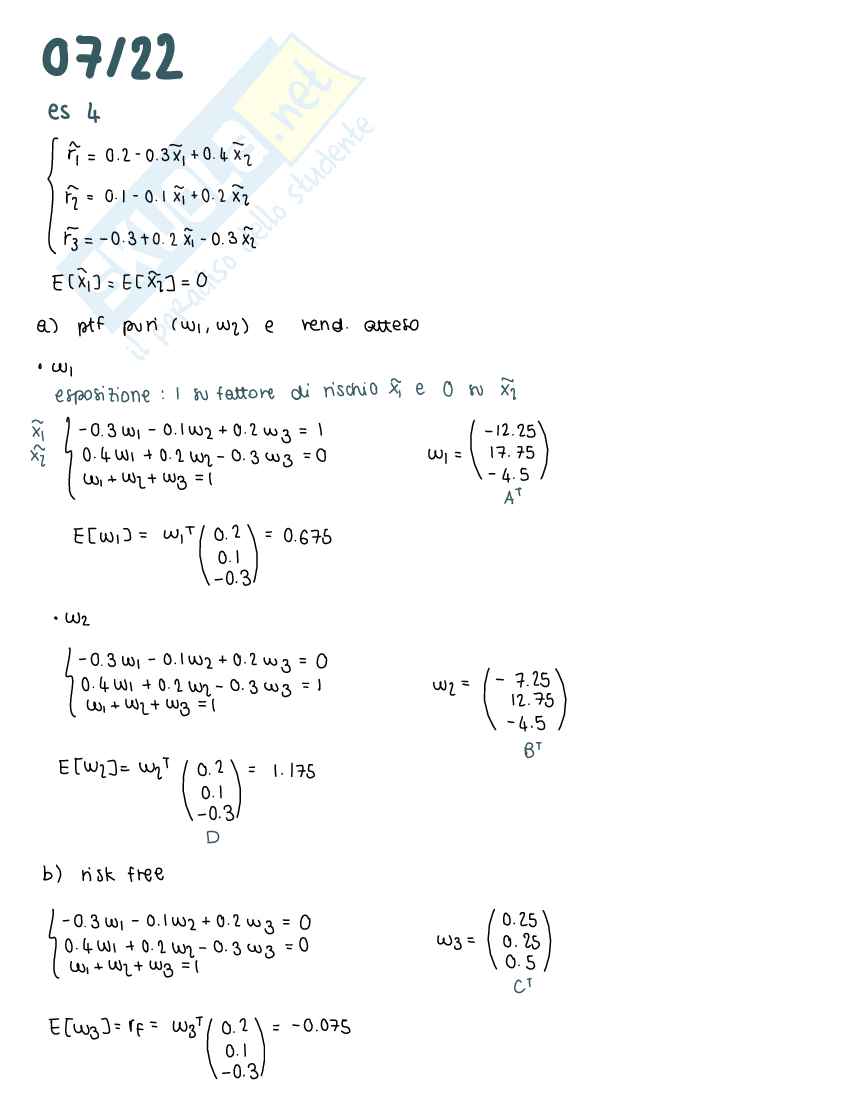 07/22
es 4
r̃1 = 0.2 - 0.3x̃1 + 0.4 x̃2
r̃2 = 0.1 - 0.1 x̃1 + 0.2 x̃2
r̃3 = -0.3 + 0.2 x̃1 - 0.3 x̃2
E[x̃1] = E[x̃2] = 0
a) ptf puri (w1, w2) e rend. atteso
• w1
esposizione : 1 su fattore di rischio x̃1 e 0 su x̃2
x̃1 -0.3 w1 - 0.1 w2 + 0.2 w3 = 1
x̃2 0.4 w1 + 0.2 w2 - 0.3 w3 = 0
w1 + w2 + w3 = 1
w1 = (-12.25
17.75
-4.5)
Aᵀ
E[w1] = w1ᵀ (0.2 = 0.675
0.1
-0.3)
• w2
-0.3 w1 - 0.1 w2 + 0.2 w3 = 0
0.4 w1 + 0.2 w2 - 0.3 w3 = 1
w1 + w2 + w3 = 1
w2 = (- 7.25
12.75
-4.5)
Bᵀ
E[w2] = w2ᵀ (0.2 = 1.175
0.1
-0.3)
D
b) risk free
-0.3 w1 - 0.1 w2 + 0.2 w3 = 0
0.4 w1 + 0.2 w2 - 0.3 w3 = 0
w1 + w2 + w3 = 1
w3 = (0.25
0.25
0.5)
Cᵀ
E[w3] = rf = w3ᵀ (0.2 = -0.075
0.1
-0.3)
SKUOLA.net
il paradiso dello studente